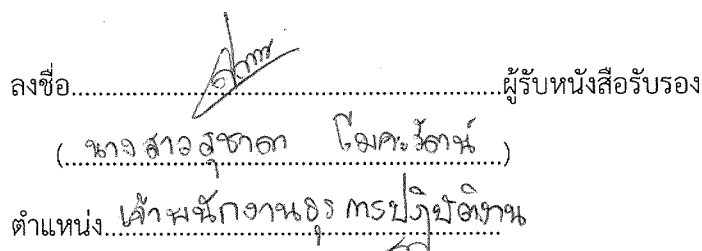 ลงชื่อ................................................ผู้รับหนังสือรับรอง
(นางสาวสุชาดา โมคะรัตน์)
ตำแหน่ง เจ้าพนักงานธุรการปฏิบัติงาน